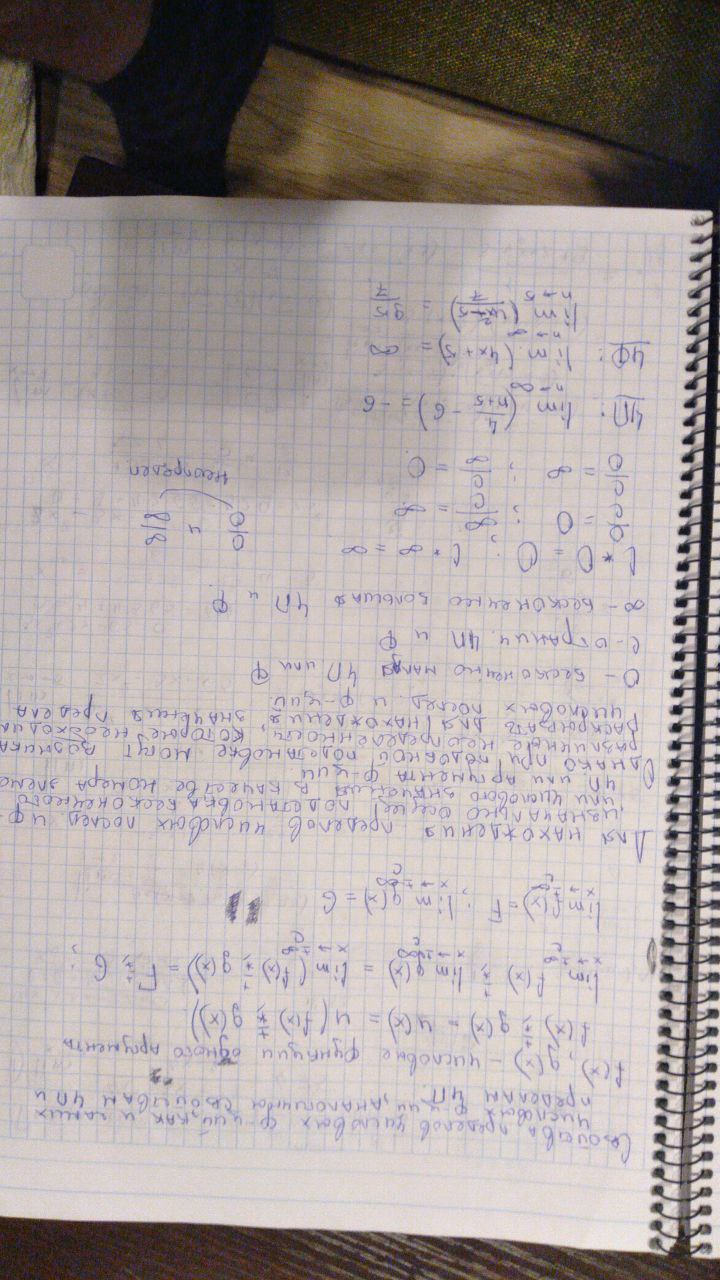 Свойства пределов числовых ф-ций, как и самих
числовых ф-ций, аналогичны свойствам ЧП и
пределам ЧП.
f(x); g(x) - числовые функции одного аргумента
f(x) ±,× g(x) = u(x) = u(f(x) ±,× g(x))
lim f(x) ±,× lim g(x) = lim (f(x) ±,× g(x)) = F ±,× G ;
x→±∞ x→±∞ x→±∞
c c c
lim f(x) = F ; lim g(x) = G
x→±∞ x→±∞
c c
Для нахождения пределов числовых послед и ф
изначально осущес. подстановка бесконечного
или числового значения в качестве номера элеме
ЧП или аргумента ф-ции.
Однако при подобной подстановке могут возника
различные неопределенности, которые необходим
раскрывать для нахождения значения предела
числовых послед. и ф-ций.
0 - бесконечно малая ЧП или ф
c - огранич. ЧП и ф
∞ - бесконечно большая ЧП и ф.
c * 0 = 0 ; c * ∞ = ∞
0/c = 0 ; ∞/c = ∞ 0/0 и ∞/∞
c/0 = ∞ ; c/∞ = 0 неопределен
ЧП: lim (4/(n+5) - 6) = -6
n→∞
ЧФ: lim (4x+5) = ∞
n→∞
lim = 95/7
n→5